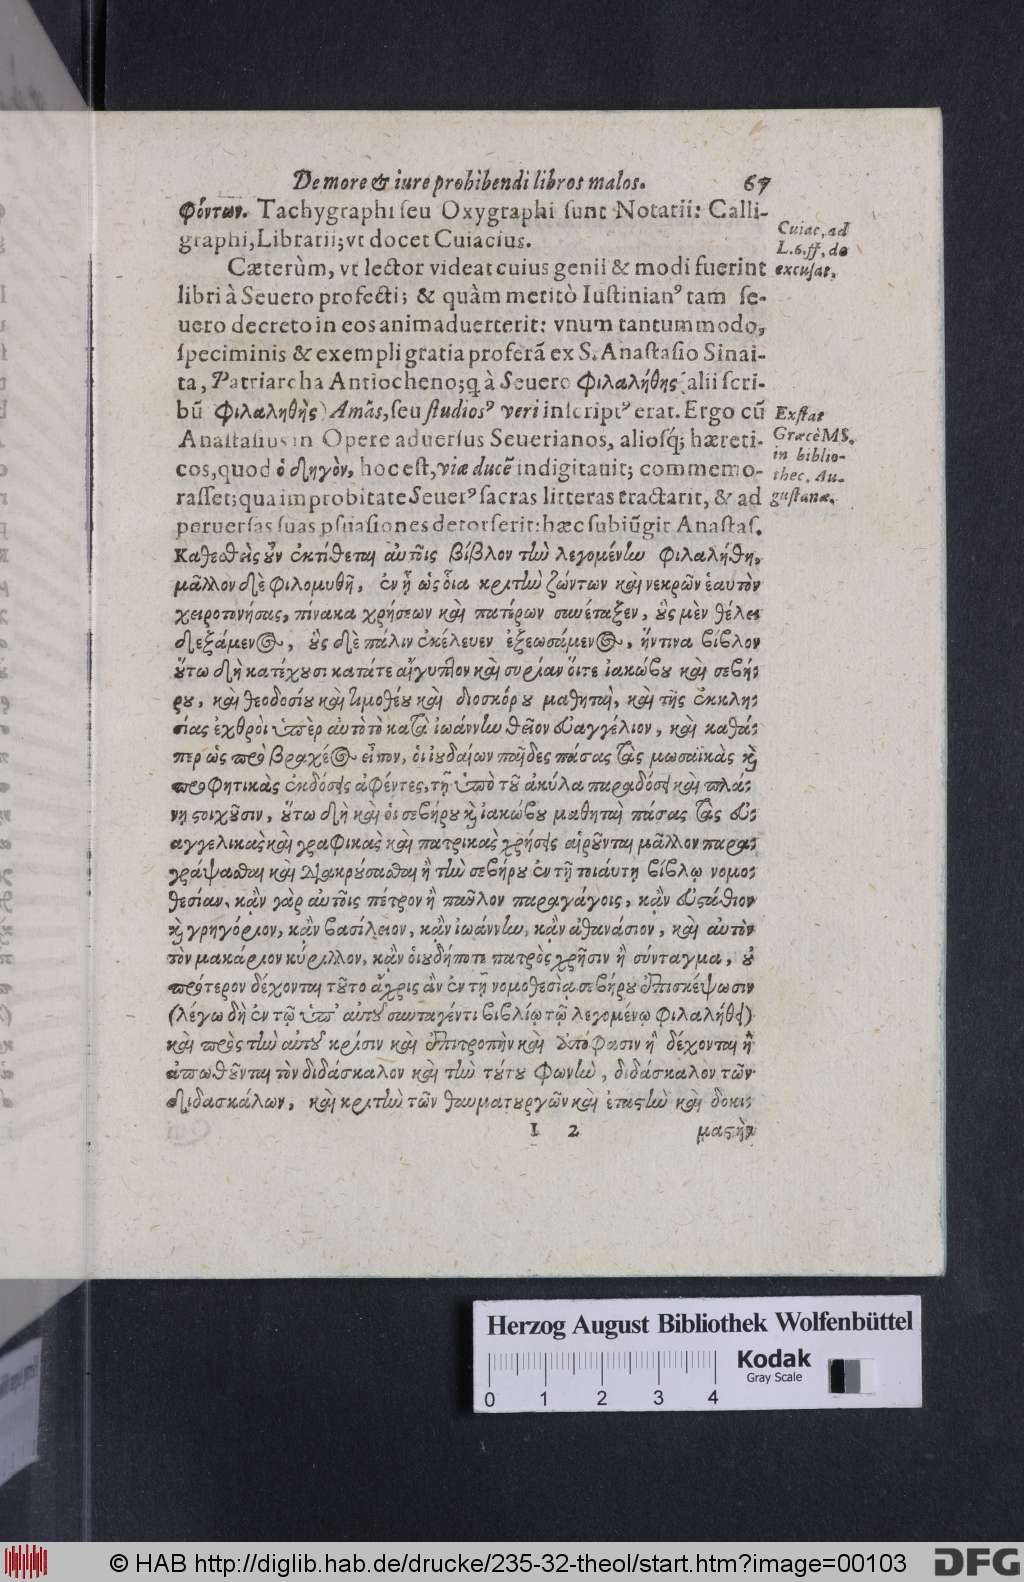 De more & iure prohibendi libros malos. 67
φόντων. Tachygraphi seu Oxygraphi sunt Notarii: Calli-
graphi, Librarii; vt docet Cuiacius.
Cuiac. ad
L. 6. ff. de
excusat.
Cæterùm, vt lector videat cuius genii & modi fuerint
libri à Seuero profecti; & quàm meritò Iustinianꝰ tam se-
uero decreto in eos animaduerterit: vnum tantummodo,
speciminis & exempli gratia proferã ex S. Anastasio Sinai-
ta, Patriarcha Antiocheno; q à Seuero Φιλαλήθης (alii scri-
bũ Φιλαληθὴς) Amãs, seu studiosꝰ veri inscriptꝰ erat. Ergo cũ
Anastasius in Opere aduersus Seuerianos, aliosq́; hæreti-
cos, quod ὁδηγὸν, hoc est, viæ ducẽ indigitauit; commemo-
rasset; qua improbitate Seuerꝰ sacras litteras tractarit, & ad
peruersas suas psuasiones detorserit: hæc subiũgit Anastas.
Exstat
Græcè MS.
in biblio-
thec. Au-
gustana.
Καθεσθεὶς οὖν ἐκτίθεται αὐτοῖς βίβλον τὴν λεγομένην Φιλαλήθη,
μᾶλλον δὲ φιλομυθῆ, ἐν ᾗ ὡς οἷα κριτὴν ζώντων καὶ νεκρῶν ἑαυτὸν
χειροτονήσας, πίνακα χρήσεων καὶ πατέρων συνέταξεν, οὓς μὲν θέλει
δεξάμενος, οὓς δὲ πάλιν ἐκέλευεν ἐξεωσάμενος, ἥντινα βίβλον
οὕτω δὴ κατέχουσι κατάτε αἴγυπτον καὶ συρίαν ὅιτε ἰακώβου καὶ σεβή-
ρου, καὶ θεοδοσίου καὶ τιμοθέου καὶ διοσκόρου μαθηταὶ, καὶ τῆς ἐκκλη-
σίας ἐχθροὶ ὑπὲρ αὐτὸ τὸ κατὰ ἰωάννην θεῖον εὐαγγέλιον, καὶ καθά-
περ ὡς πρὸ βραχέος εἶπον, ὁι ἰουδαίων παῖδες πάσας τὰς μωσαϊκὰς κὶ
προφητικὰς ἐκδόσεις ἀφέντες, τῇ ὑπὸ τοῦ ἀκύλα παραδόσει καὶ πλά-
νῃ στοιχοῦσιν, οὕτω δὴ καὶ ὁι σεβήρου κὶ ἰακώβου μαθηταὶ πάσας τὰς εὐ-
αγγελικὰς καὶ γραφικὰς καὶ πατρικὰς χρήσεις αἱροῦνται μᾶλλον παρα-
γράψασθαι καὶ διακρούσασθαι ἢ τὴν σεβήρου ἐν τῇ τοιάυτῃ βίβλῳ νομο-
θεσίαν, κἂν γὰρ αὐτοῖς πέτρον ἢ παῦλον παραγάγοις, κἂν εὐστάθιον
κὶ γρηγόριον, κἂν βασίλειον, κἂν ἰωάννην, κἂν ἀθανάσιον, καὶ αὐτὸν
τὸν μακάριον κύριλλον, κἂν ὁιουδήποτε πατρὸς χρῆσιν ἢ σύνταγμα, οὐ
πρότερον δέχονται τοῦτο ἄχρις ἂν ἐν τῇ νομοθεσίᾳ σεβήρου ἐπισκέψωσιν
(λέγω δὴ ἐν τῷ ὑπ' αὐτοῦ συνταγέντι βιβλίῳ τῷ λεγομένῳ Φιλαλήθει)
καὶ πρὸς τὴν αὐτοῦ κρίσιν καὶ ἐπιτροπὴν καὶ ἀπόφασιν ἢ δέχονται ἢ
ἀπωθοῦνται τὸν διδάσκαλον καὶ τὴν τούτου φωνὴν, διδάσκαλον τῶν
διδασκάλων, καὶ κριτὴν τῶν θαυματουργῶν καὶ ἐταστὴν καὶ δοκι-
I 2 μαστὴν
Herzog August Bibliothek Wolfenbüttel
Kodak
Gray Scale
0 1 2 3 4
© HAB http://diglib.hab.de/drucke/235-32-theol/start.htm?image=00103
DFG